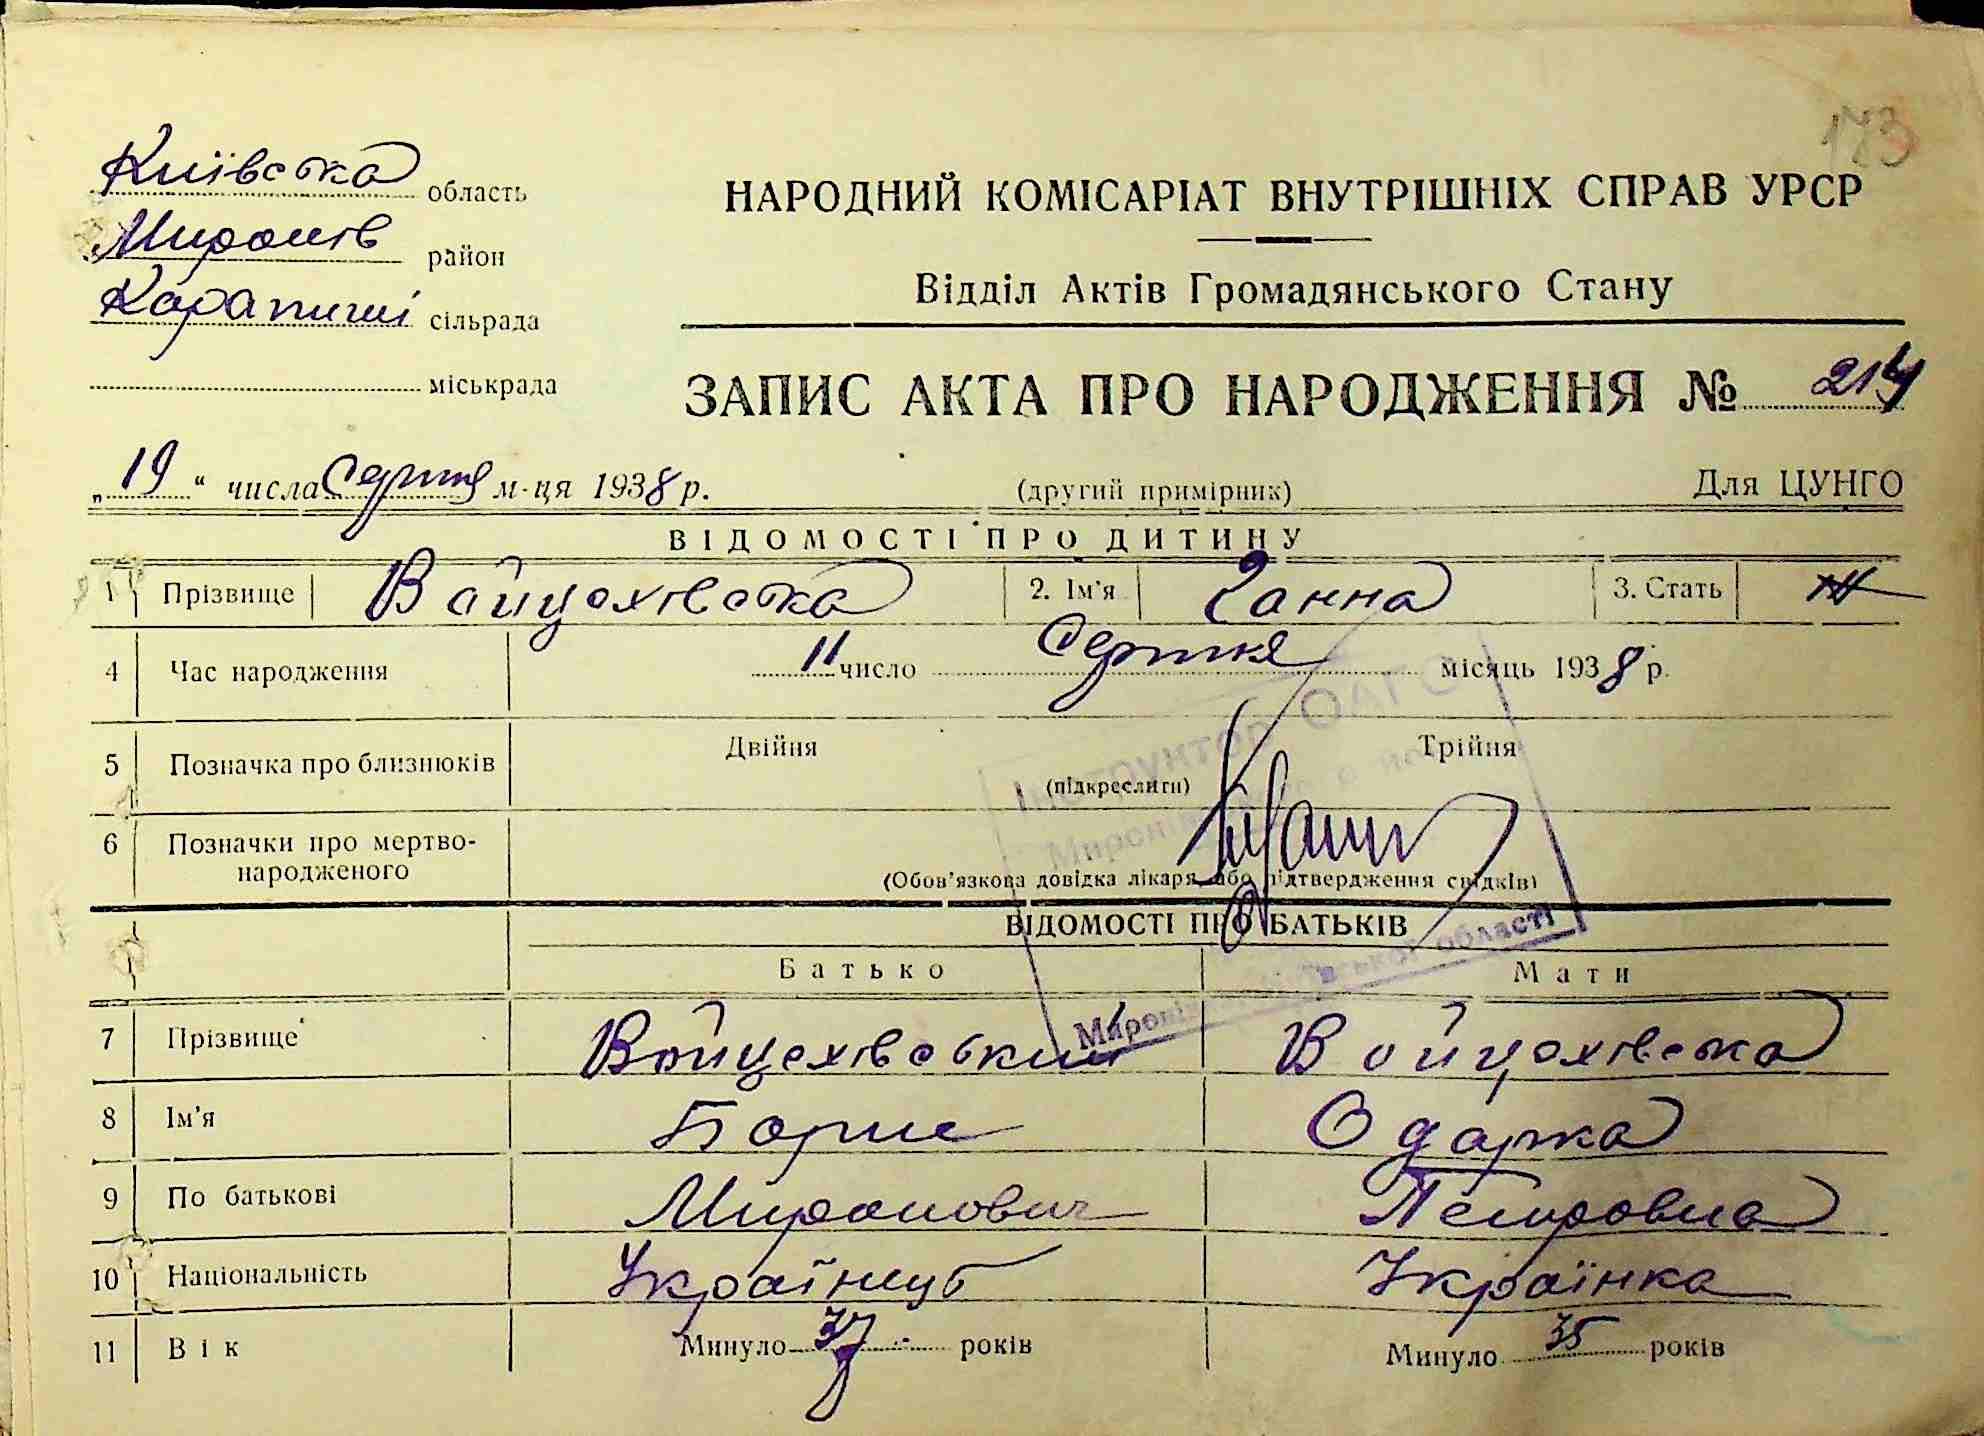 173
Київська область
Миронів район
Карапиші сільрада
міськрада
НАРОДНИЙ КОМІСАРІАТ ВНУТРІШНІХ СПРАВ УРСР
Відділ Актів Громадянського Стану
ЗАПИС АКТА ПРО НАРОДЖЕННЯ № 214
„19“ числа Серпня м-ця 1938 р.
(другий примірник)
Для ЦУНГО
ВІДОМОСТІ ПРО ДИТИНУ
1 Прізвище Войцехівська 2. Ім'я Ганна 3. Стать Ж
4 Час народження 11 число Серпня місяць 1938 р.
5 Позначка про близнюків Двійня Трійня
(підкреслити)
6 Позначки про мертво-
народженого
(Обов'язкова довідка лікаря або підтвердження свідків)
Інструктор ОАГС
Миронів
області
ВІДОМОСТІ ПРО БАТЬКІВ
Батько Мати
7 Прізвище Войцехівський Войцехівська
8 Ім'я Борис Одарка
9 По батькові Миронович Петровна
10 Національність Українець Українка
11 Вік Минуло 37 років Минуло 35 років